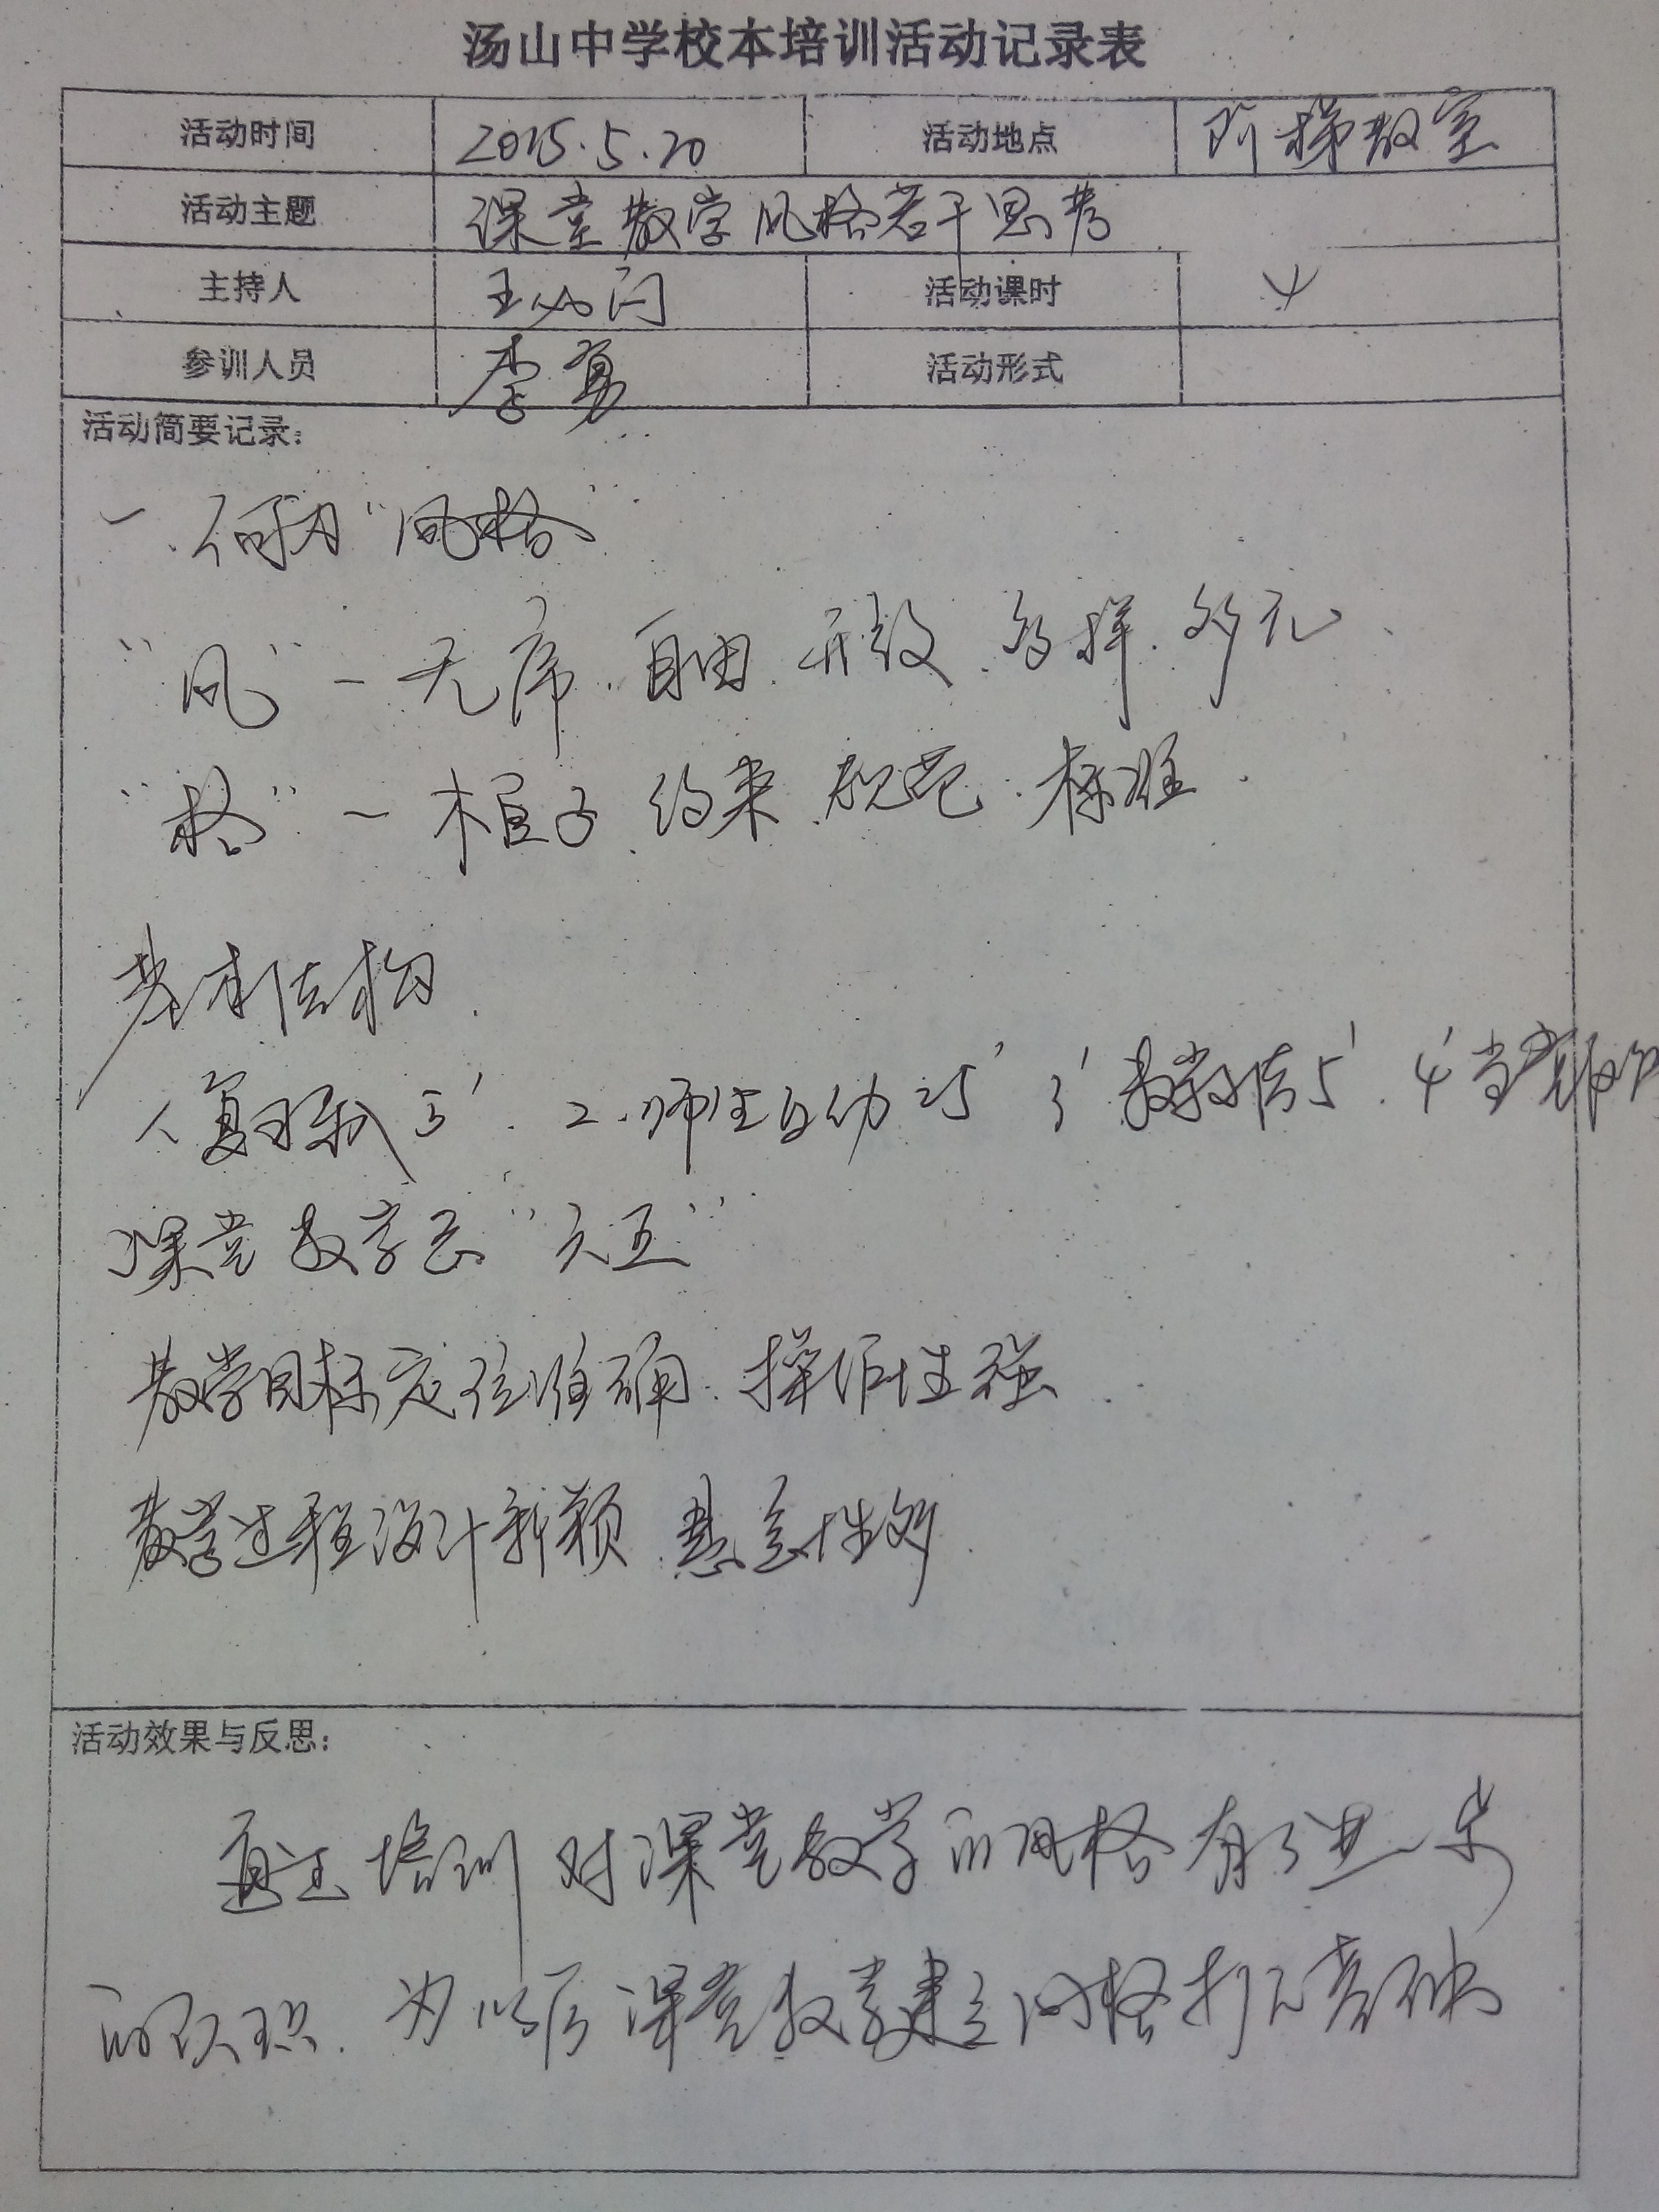 汤山中学校本培训活动记录表
活动时间 2015.5.20 活动地点 阶梯教室
活动主题 课堂教学风格若干思考
主持人 王 闪 活动课时 4
参训人员 李勇 活动形式
活动简要记录:
一.何为“风格”
“风”-无序.自由.开放.多样.多元.
“格”-框子.约束.规范.标准.
基本结构.
1.复习 5'. 2.师生互动25' 3' 教学 结5'. 4'当堂
课堂教学 “六五”
教学目标定位准确.操作性强
教学过程设计新颖. 性多.
活动效果与反思:
通过培训对课堂教学的风格有了进一步
的认识.为以后课堂教学建立风格打下基础.